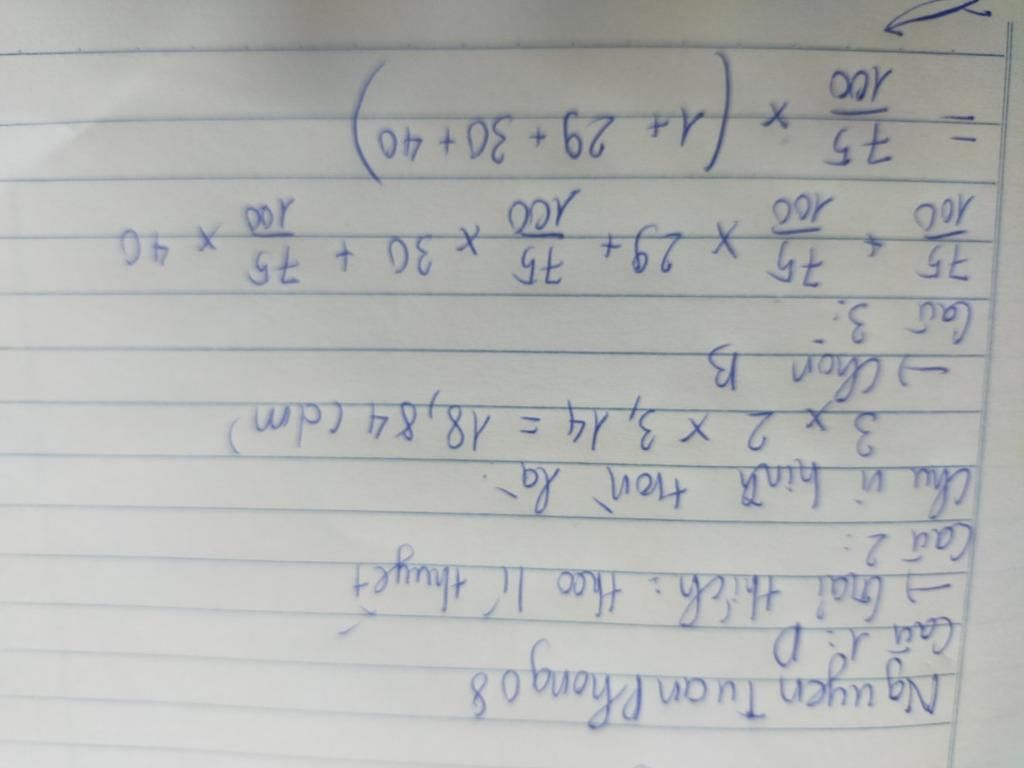 Nguyen Tuan Phong 08
Câu 1: D
→ Giải thích: theo lí thuyết
Câu 2:
Chu vi hình tròn là:
3 × 2 × 3,14 = 18,84 (dm)
→ Chọn B
Câu 3:
75/100 + 75/100 × 29 + 75/100 × 30 + 75/100 × 40
= 75/100 × (1 + 29 + 30 + 40)